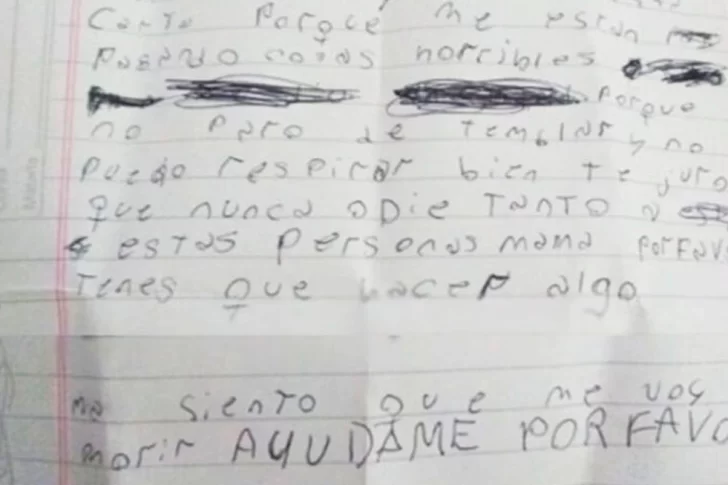 Carta Porque me estan
Pasando cosas horribles
Porque
no Paro de temblar y no
Puedo respirar bien te juro
que nunca odie TanTo a
estas Personas mama PorFav
Tenes que hacer algo
me siento que me voy
morir AYUDAME PORFAVO